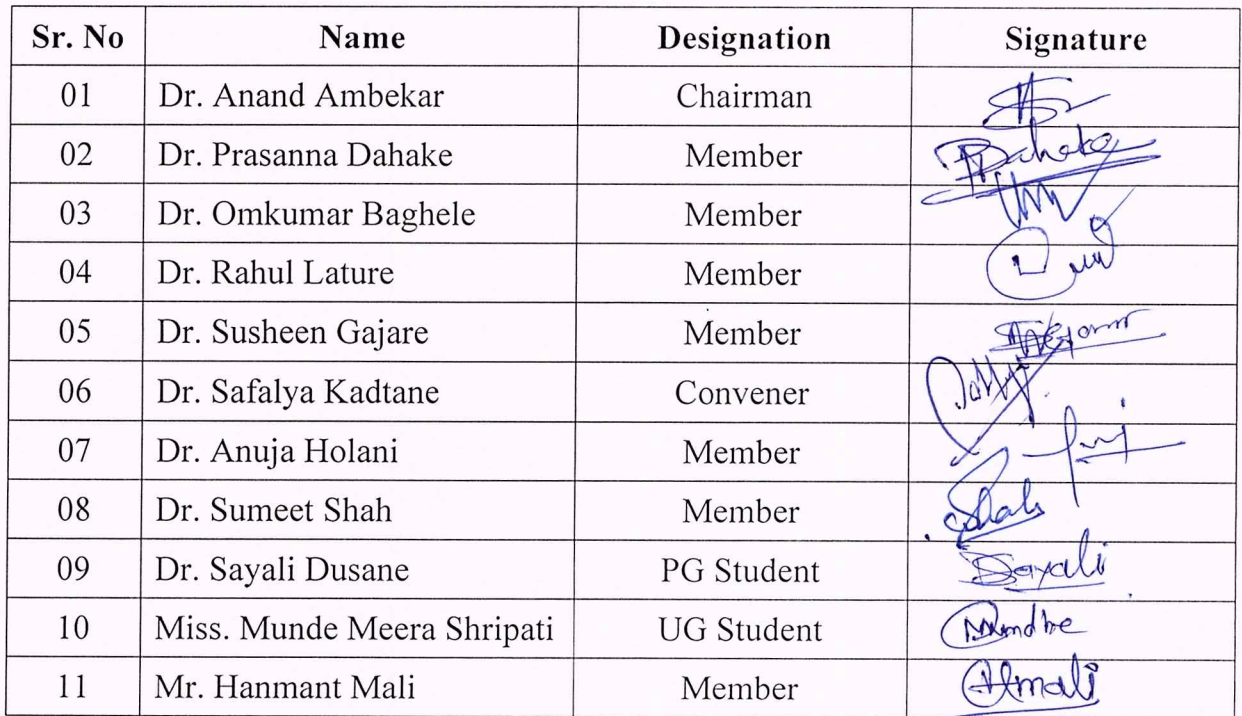 Sr. No Name Designation Signature
01 Dr. Anand Ambekar Chairman
02 Dr. Prasanna Dahake Member Dahake
03 Dr. Omkumar Baghele Member
04 Dr. Rahul Lature Member
05 Dr. Susheen Gajare Member
06 Dr. Safalya Kadtane Convener
07 Dr. Anuja Holani Member
08 Dr. Sumeet Shah Member Shah
09 Dr. Sayali Dusane PG Student Sayali
10 Miss. Munde Meera Shripati UG Student
11 Mr. Hanmant Mali Member Hmali